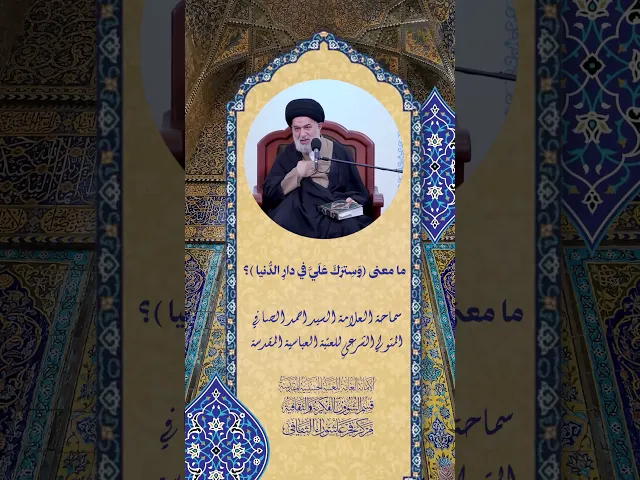 ما معنى (وَسِترَكَ عَلَيَّ في دارِ الدُنيا)؟
سماحة العلامة السيد احمد الصافي
المتولي الشرعي للعتبة العباسية المقدسة
الأمانة العامة للعتبة الحسينية المقدسة
قسم الشؤون الفكرية والثقافية